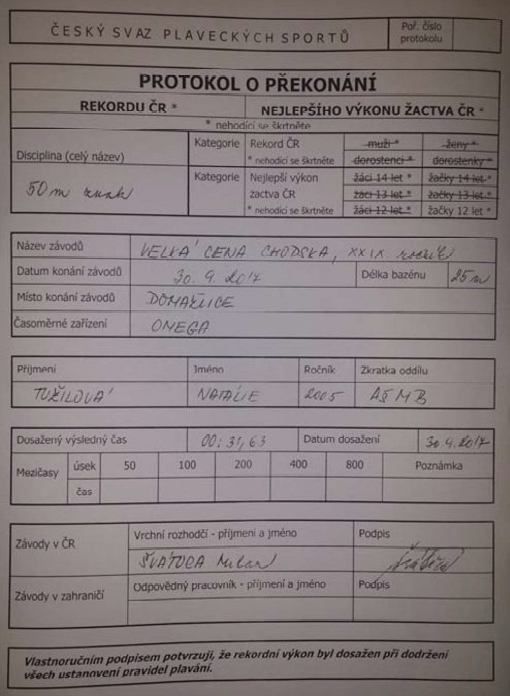 ČESKÝ SVAZ PLAVECKÝCH SPORTŮ
Poř. číslo protokolu
PROTOKOL O PŘEKONÁNÍ
REKORDU ČR *
NEJLEPŠÍHO VÝKONU ŽACTVA ČR *
* nehodící se škrtněte
Disciplina (celý název)
50 m znak
Kategorie Rekord ČR muži * ženy *
* nehodící se škrtněte dorostenci * dorostenky *
Kategorie Nejlepší výkon žáci 14 let * žačky 14 let *
žactva ČR žáci 13 let * žačky 13 let *
* nehodící se škrtněte žáci 12 let * žačky 12 let *
Název závodů VELKÁ CENA CHODSKA, XXIX. ročník
Datum konání závodů 30. 9. 2017 Délka bazénu 25m
Místo konání závodů DOMAŽLICE
Časoměrné zařízení OMEGA
Příjmení Jméno Ročník Zkratka oddílu
TUŽILOVÁ NATÁLIE 2005 AŠMB
Dosažený výsledný čas 00:31,63 Datum dosažení 30.9.2017
Mezičasy úsek 50 100 200 400 800 Poznámka
čas
Závody v ČR
Vrchní rozhodčí - příjmení a jméno Podpis
ŠVÁTORA Milan
Závody v zahraničí
Odpovědný pracovník - příjmení a jméno Podpis
Vlastnoručním podpisem potvrzuji, že rekordní výkon byl dosažen při dodržení
všech ustanovení pravidel plavání.